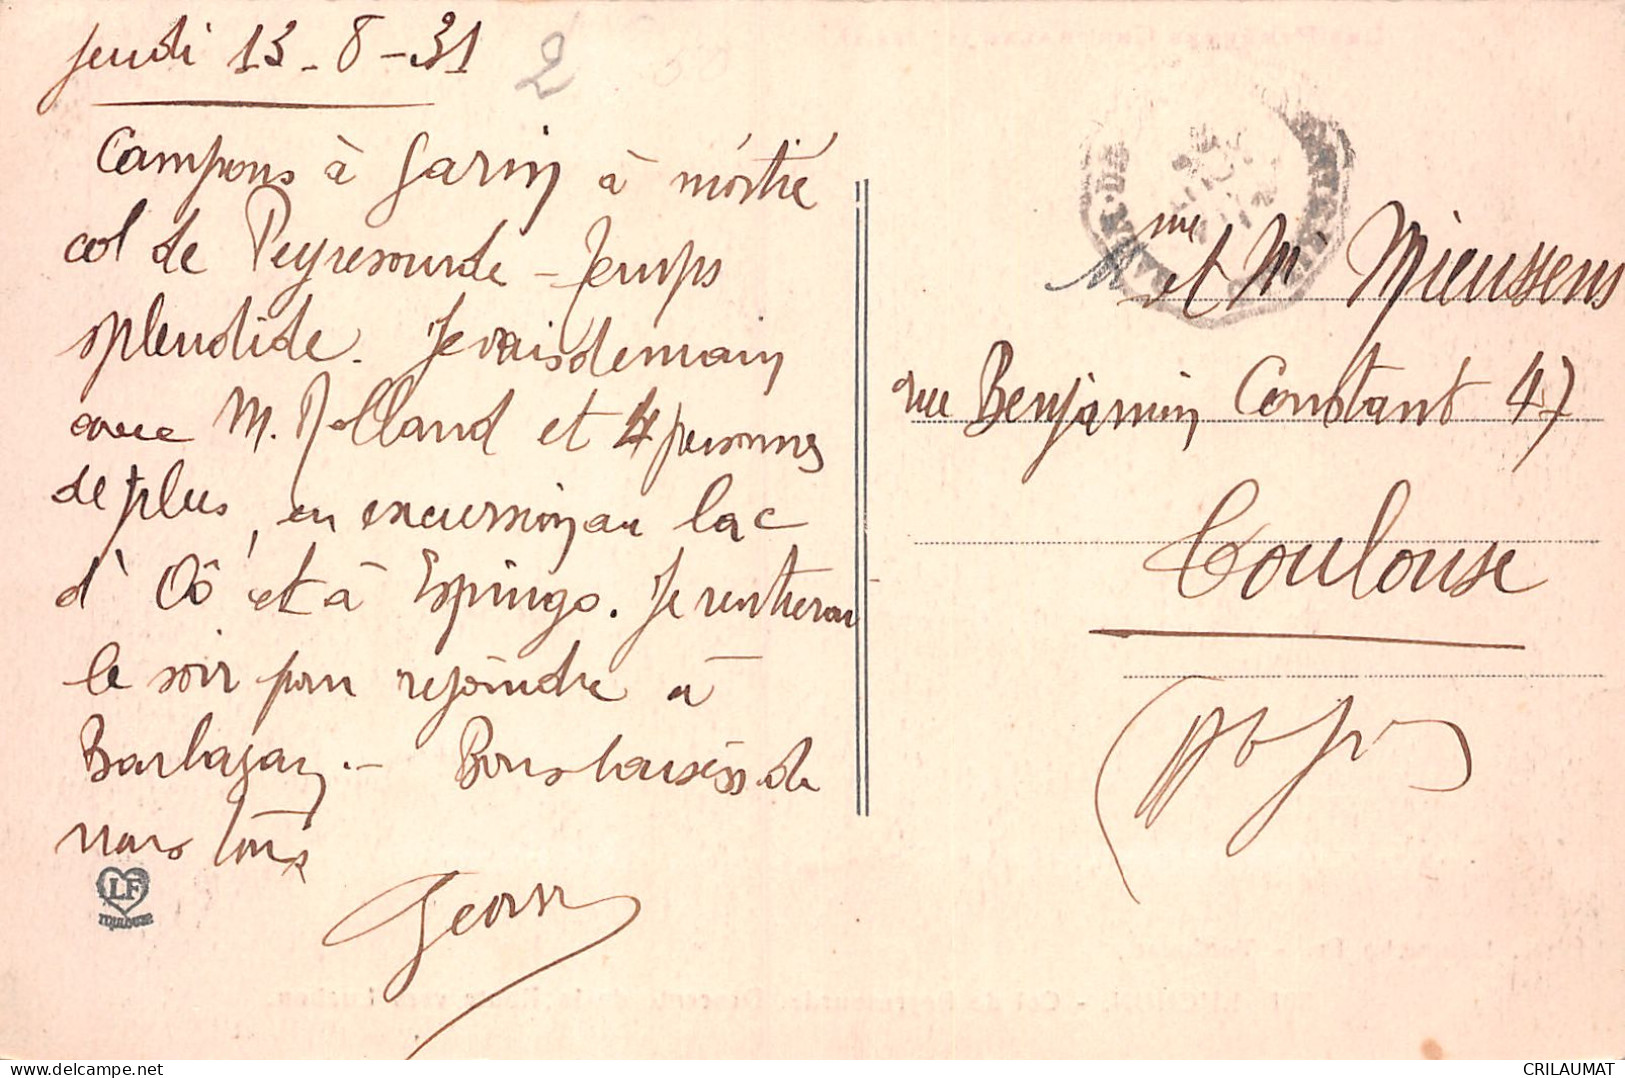 Jeudi 13-8-31
2
Campons à Garin à moitié
col de Peyresourde - Temps
splendide. Je vais demain
avec M. Rolland et 4 personnes
de plus, en excursion au lac
d'Oô et à Espingo. Je rentrerai
le soir pour rejoindre à
Barbazan. - Bons baisers de
nous tous
Jean
LF
Toulouse
Mme et Mr Mieussens
rue Benjamin Constant 47
Toulouse
CRILAUMAT